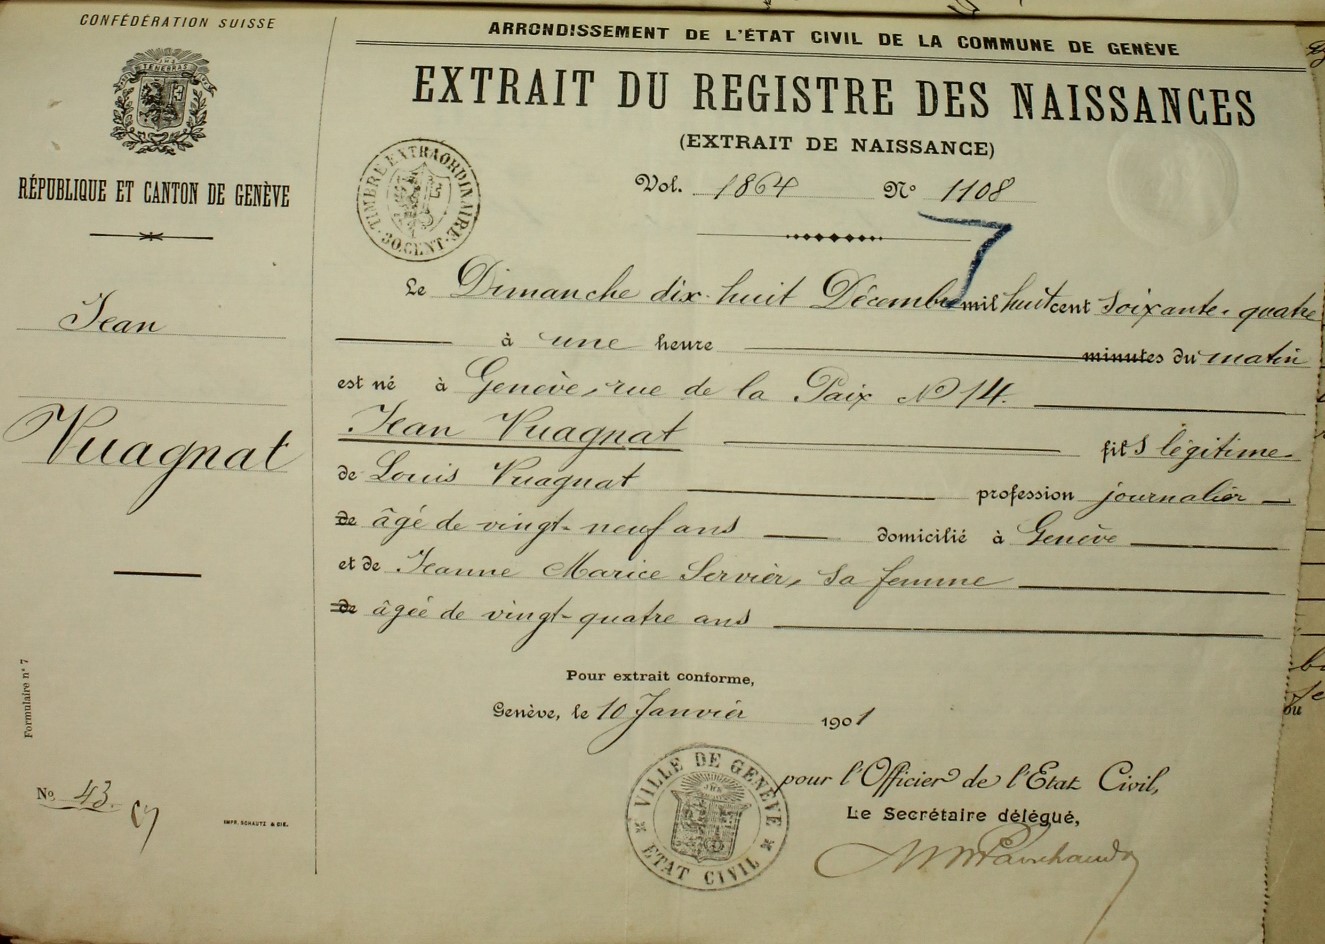 CONFÉDÉRATION SUISSE
POST TENEBRAS LUX
RÉPUBLIQUE ET CANTON DE GENÈVE
Jean
Vuagnat
Formulaire n° 7
No 43.
IMPR. SCHAUTZ & CIE.
ARRONDISSEMENT DE L'ÉTAT CIVIL DE LA COMMUNE DE GENÈVE
EXTRAIT DU REGISTRE DES NAISSANCES
(EXTRAIT DE NAISSANCE)
TIMBRE EXTRAORDINAIRE
30 CENT.
Vol. 1864 N° 1108
7
Le Dimanche dix-huit Décembre mil huit cent soixante-quatre
à une heure minutes du matin
est né à Genève, rue de la Paix N° 14.
Jean Vuagnat fils légitime
de Louis Vuagnat profession journalier
de âgé de vingt-neuf ans domicilié à Genève
et de Jeanne Marice Servier, sa femme
de âgée de vingt-quatre ans
Pour extrait conforme,
Genève, le 10 Janvier 1901
VILLE DE GENÈVE
ETAT CIVIL
pour l'Officier de l'Etat Civil,
Le Secrétaire délégué,